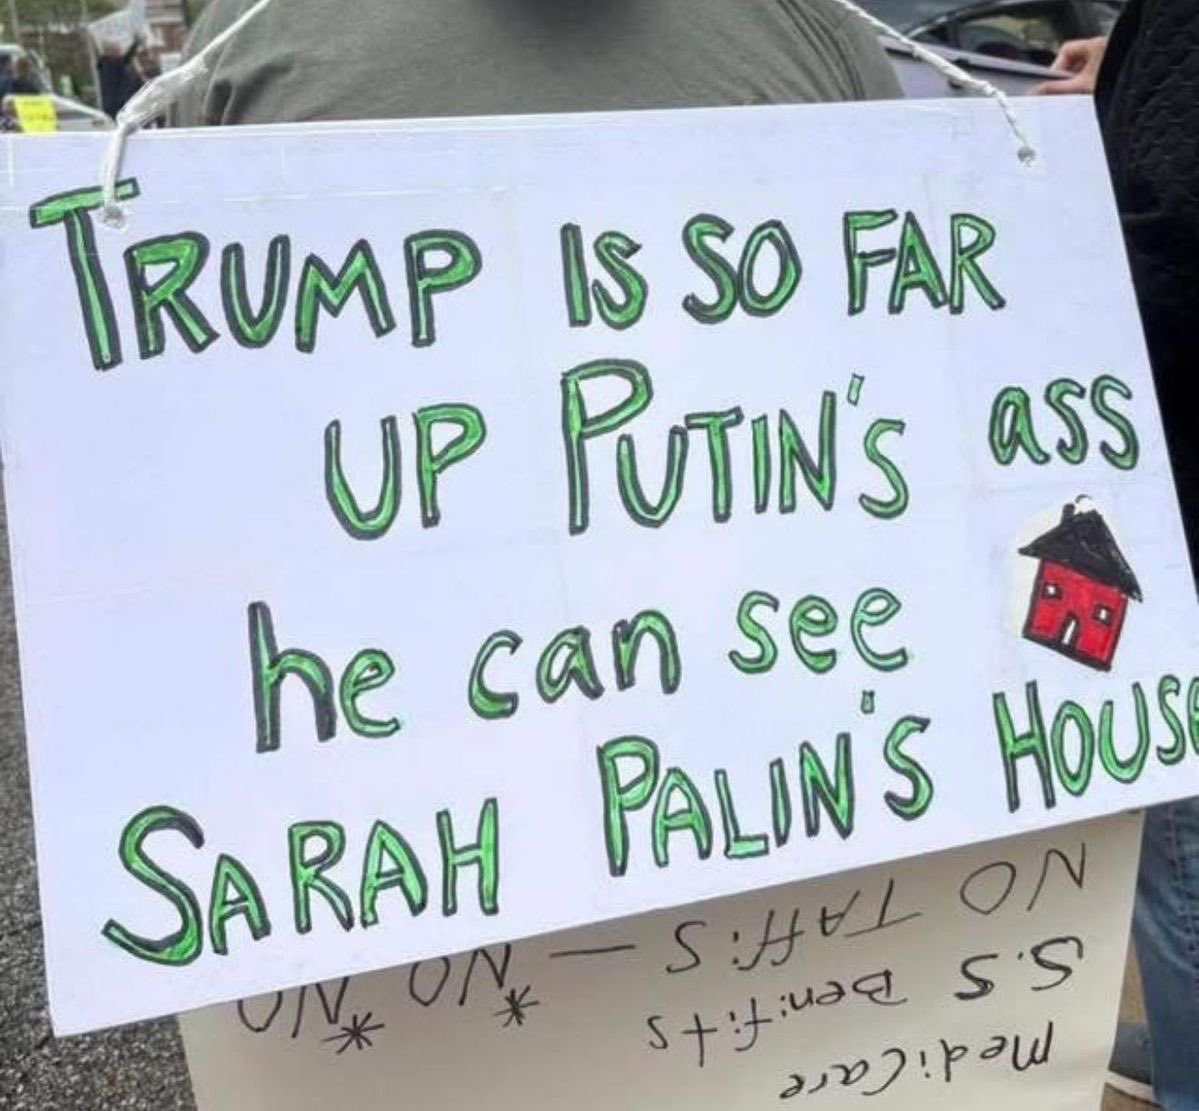 TRUMP IS SO FAR
UP PUTIN'S ass
he can see
SARAH PALIN'S HOUSE
Medicare
S.S Benifits
NO TAffiS — *NO *NO